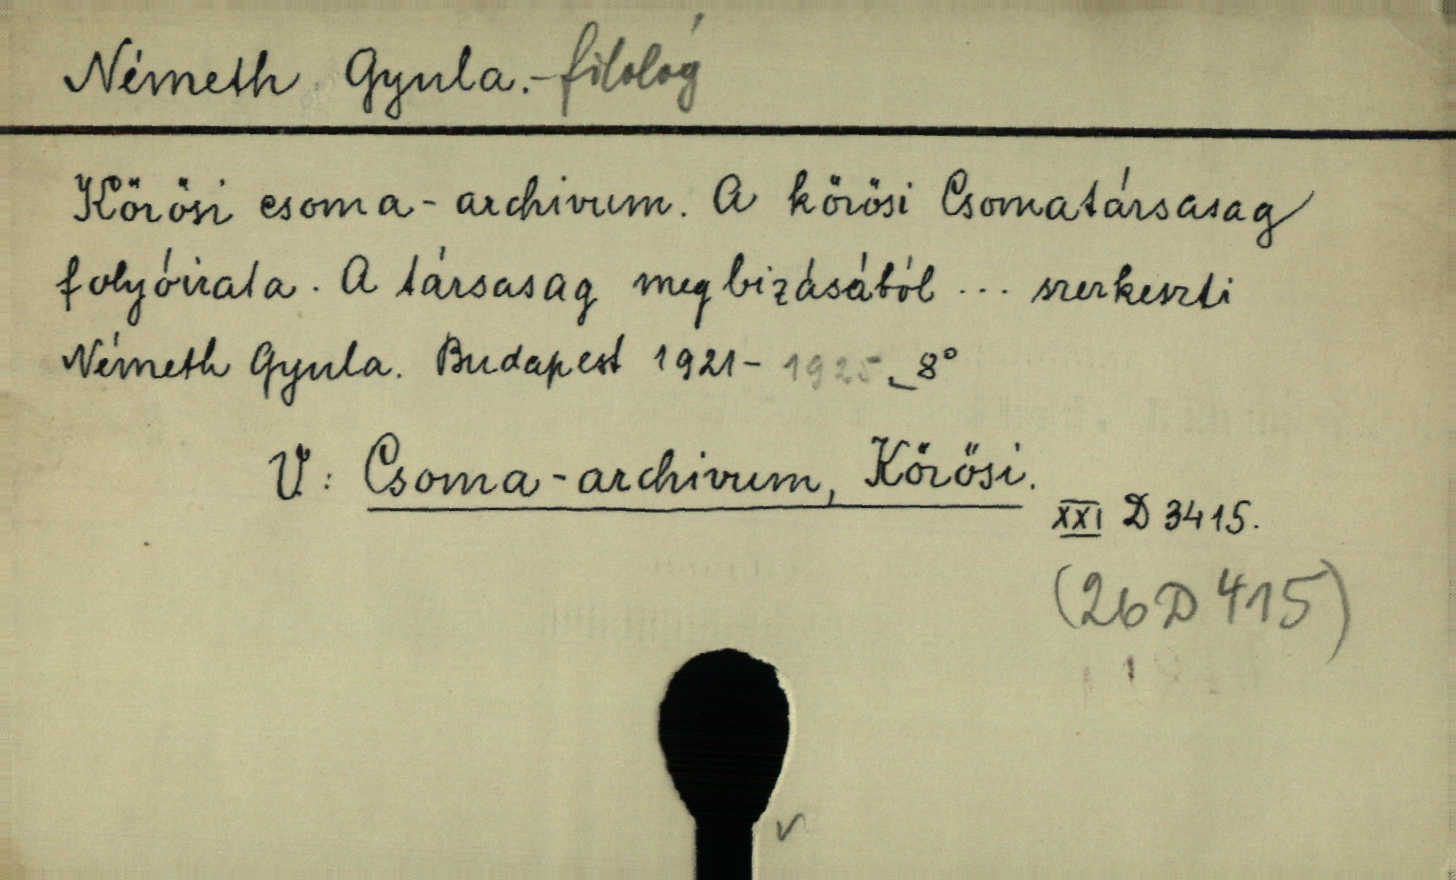 Németh Gyula.-filológ
Körösi csoma-archivum. A körösi Csomatársasag
folyóirata. A társasag megbizásából ... szerkeszti
Németh Gyula. Budapest 1921-1925_8°
V: Csoma-archivum, Körösi.
XXI D 3415.
(26 D 415)